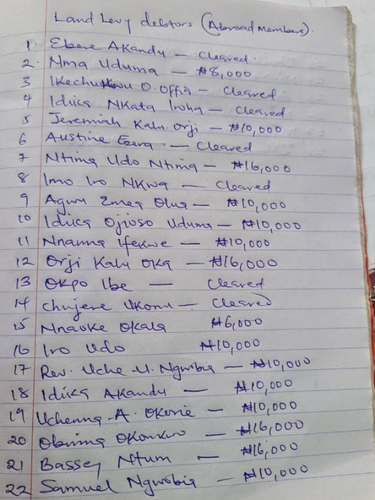 Land Levy debtors (Abroad Members).
1. Ebere Akandu — Cleared.
2. Nma Uduma — ₦8,000
3 Ikechukwu O. Offia — Cleared.
4 Idika Nkata Iroha — Cleared
5 Jeremiah Kalu Orji — ₦10,000
6 Austine Egwa — Cleared
7 Ntima Udo Ntima — ₦16,000
8 Imo Iro Nkwa — Cleared
9 Agwu Emea Olua — ₦10,000
10 Idika Ojioso Uduma — ₦10,000
11 Nnanna Ifekwe — ₦10,000
12 Orji Kalu Oka — ₦16,000
13 Okpo Ibe — Cleared
14 Chujere Ukonu — Cleared
15 Nnaoke Okala ₦6,000
16 Iro Udo ₦10,000
17 Rev. Uche U. Ngwobia — ₦10,000
18 Idika Akandu — ₦10,000
19 Uchenna A. Okorie — ₦10,000
20 Obinna Okonkwo — ₦16,000
21 Bassey Ntum — ₦16,000
22 Samuel Ngwobia — ₦10,000